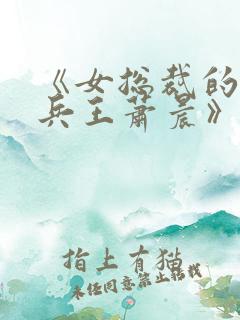 《女总裁的
兵王萧晨》
指上有猫
未经同意禁止转载